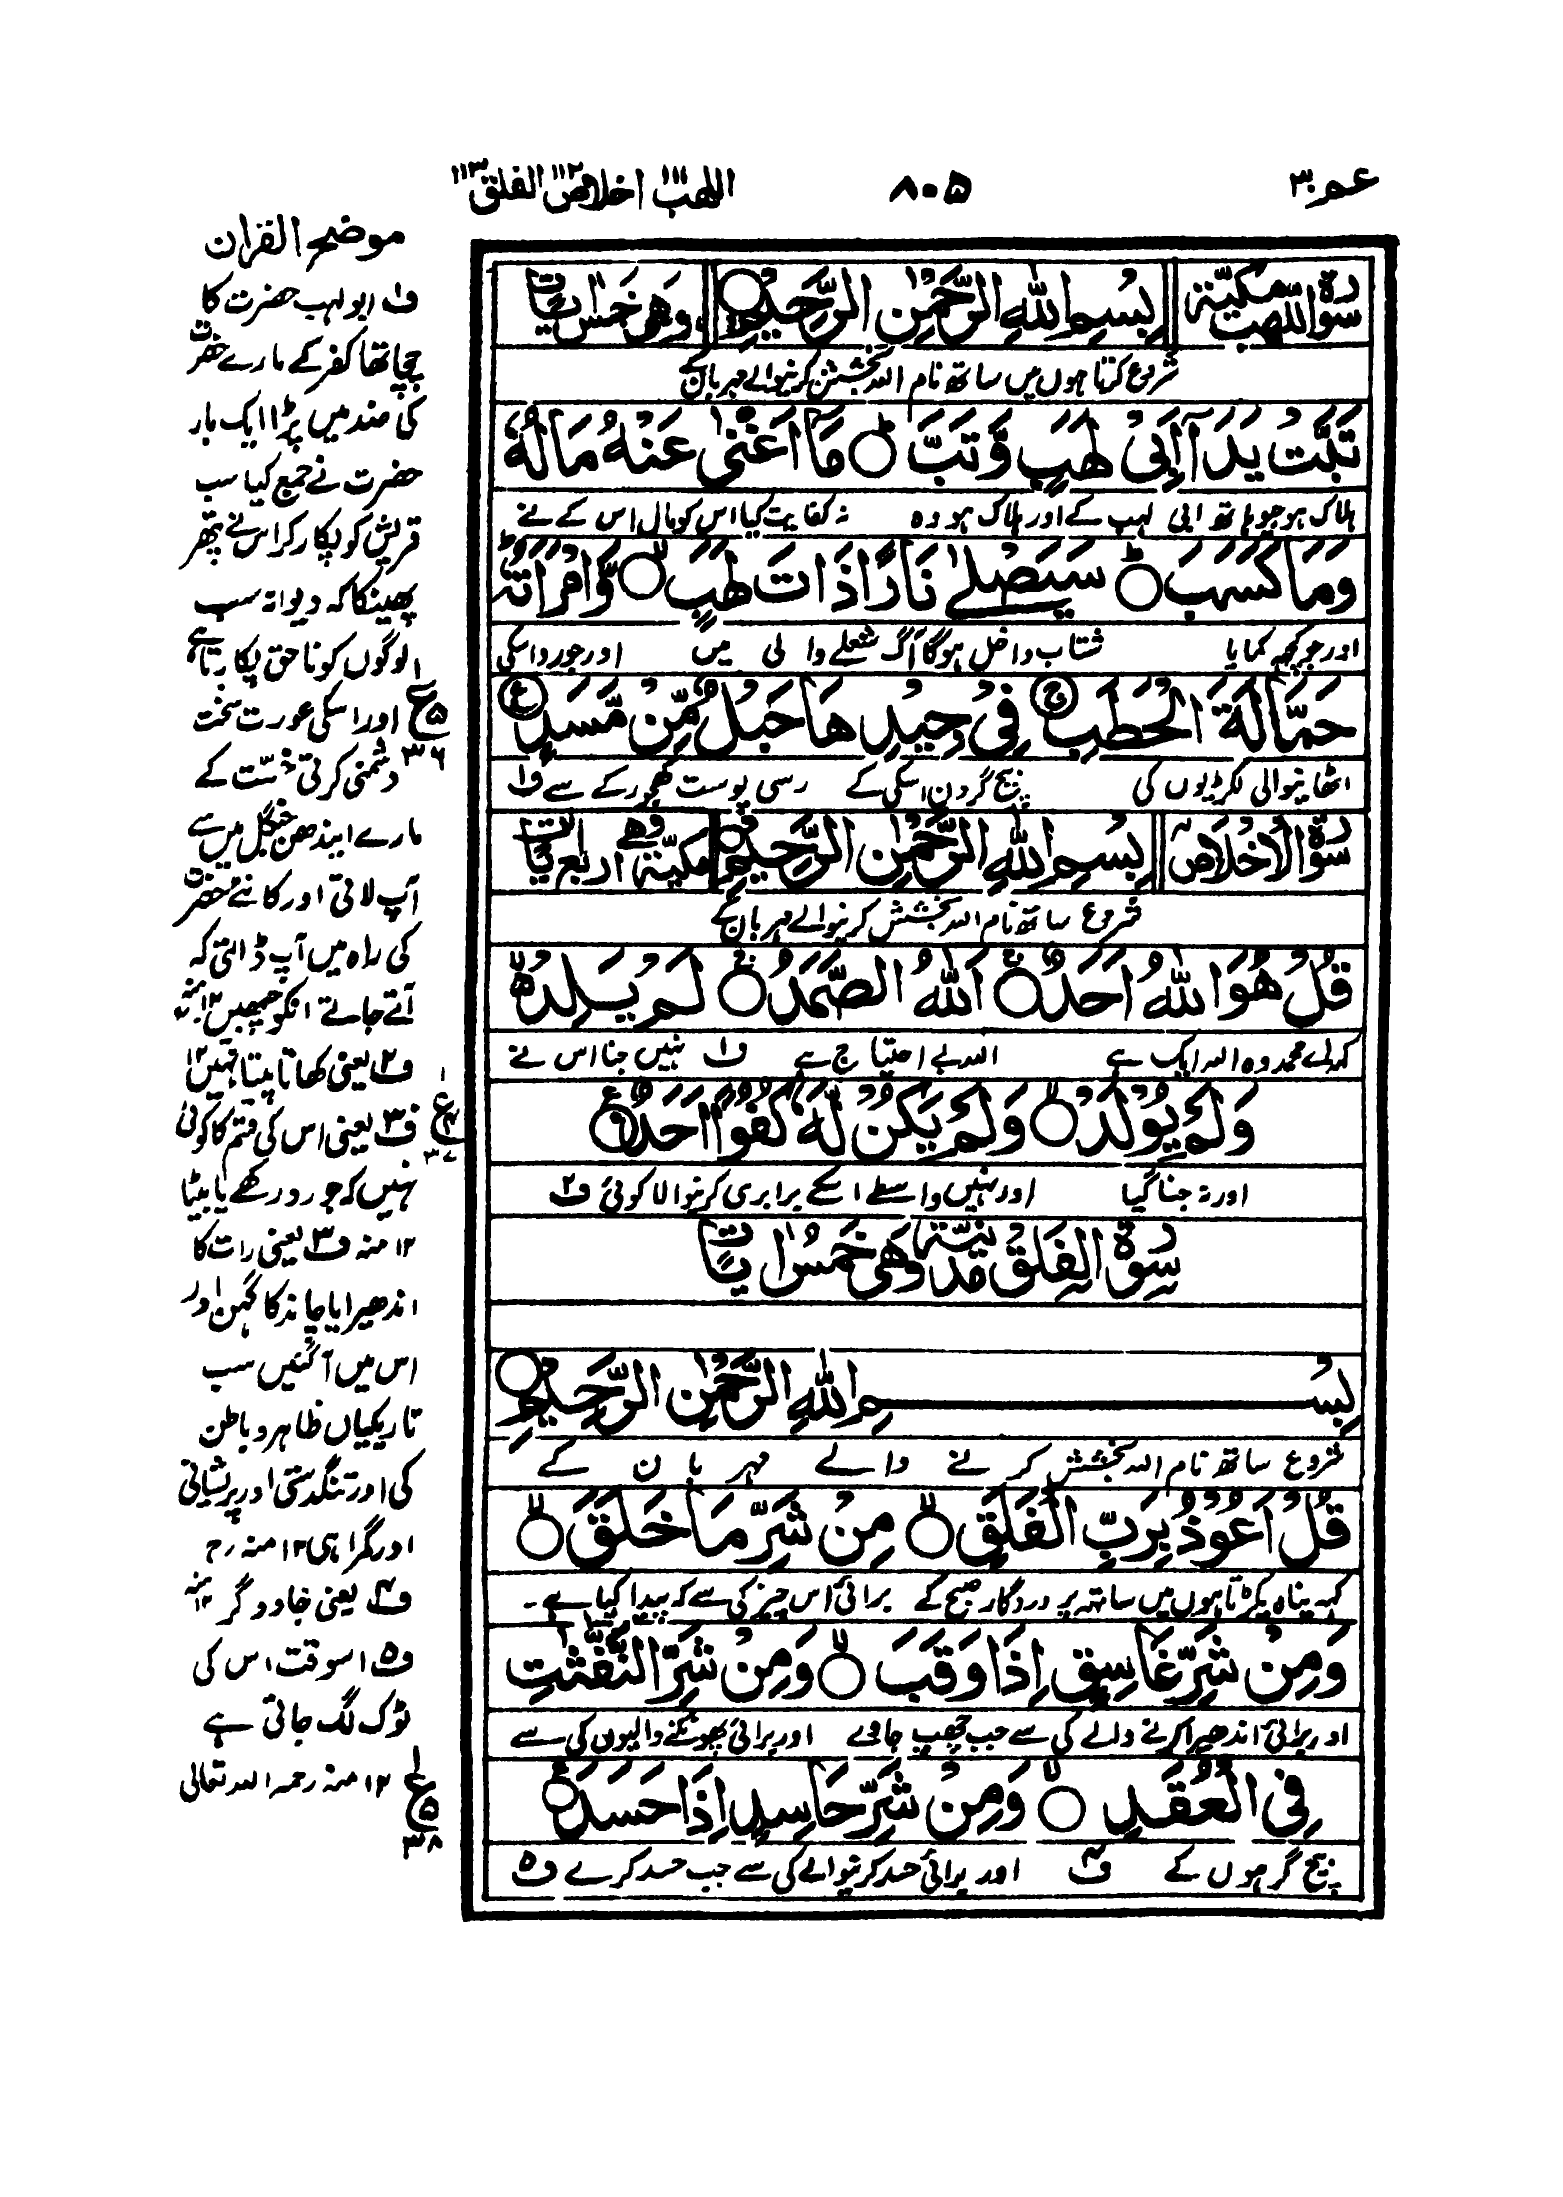 عم ٣٠
٨٠٥
اللهب ١١١ اخلاص ١١٢ الفلق ١١٣
سورة اللهب مكية بِسْمِ اللهِ الرَّحْمٰنِ الرَّحِيْمِ وهي خمس ايات
شروع کرتا ہوں میں ساتھ نام اللہ بخشش کرنیوالے مہربان کے
تَبَّتْ يَدَآ اَبِىْ لَهَبٍ وَّتَبَّ ۞ مَآ اَغْنٰى عَنْهُ مَالُهٗ
ہلاک ہو جیو ہاتھ ابی لہب کے اور ہلاک ہو وہ نہ کفایت کیا اس کو مال اس کے نے
وَمَا كَسَبَ ۞ سَيَصْلٰى نَارًا ذَاتَ لَهَبٍ ۞ وَّامْرَاَتُهٗ
اور جو کچھ کمایا شتاب داخل ہوگا آگ شعلے والی میں اور جورو اسکی
حَمَّالَةَ الْحَطَبِ ۞ فِىْ جِيْدِهَا حَبْلٌ مِّنْ مَّسَدٍ ۞
اٹھانیوالی لکڑیوں کی بیچ گردن اسکی کے رسی پوست کھجور کے سے ف۱
سورة الاخلاص بِسْمِ اللهِ الرَّحْمٰنِ الرَّحِيْمِ مكية وهي اربع ايات
شروع ساتھ نام اللہ بخشش کرنیوالے مہربان کے
قُلْ هُوَ اللهُ اَحَدٌ ۞ اَللهُ الصَّمَدُ ۞ لَمْ يَلِدْ
کہہ اے محمد وہ اللہ ایک ہے اللہ بے احتیاج ہے ف۱ نہیں جنا اس نے
وَلَمْ يُوْلَدْ ۞ وَلَمْ يَكُنْ لَّهٗ كُفُوًا اَحَدٌ ۞
اور نہ جنا گیا اور نہیں واسطے اسکے برابری کرنیوالا کوئی ف۲
سورة الفلق مدنية وهي خمس ايات
بِسْمِ اللهِ الرَّحْمٰنِ الرَّحِيْمِ
شروع ساتھ نام اللہ بخشش کرنے والے مہربان کے
قُلْ اَعُوْذُ بِرَبِّ الْفَلَقِ ۞ مِنْ شَرِّ مَا خَلَقَ ۞
کہہ پناہ پکڑتا ہوں میں ساتھ پروردگار صبح کے برائی اس چیز کی سے کہ پیدا کیا ہے ۔
وَمِنْ شَرِّ غَاسِقٍ اِذَا وَقَبَ ۞ وَمِنْ شَرِّ النَّفّٰثٰتِ
اور برائی اندھیرا کرنے والے کی سے جب چھپ جاوے اور برائی پھونکنے والیوں کی سے
فِى الْعُقَدِ ۞ وَمِنْ شَرِّ حَاسِدٍ اِذَا حَسَدَ ۞
بیچ گرہوں کے ف۴ اور برائی حسد کرنیوالے کی سے جب حسد کرے ف۵
موضح القرآن
ف۱ ابو لہب حضرت کا
چچا تھا کفر کے مارے حضرت
کی ضد میں پڑا ایک بار
حضرت نے جمع کیا سب
قریش کو پکار کر اس نے پتھر
پھینکا کہ دیوانہ سب
لوگوں کو ناحق پکارتا ہے
اور اسکی عورت سخت
دشمنی کرتی خسّت کے
مارے ایندھن جنگل میں سے
آپ لاتی اور کانٹے حضرت
کی راہ میں آپ ڈالتی کہ
آتے جاتے انکو چبھیں ۱۲ منہ
ف۲ یعنی کھاتا پیتا نہیں ۱۲
ف۳ یعنی اس کی قسم کا کوئی
نہیں کہ جورو رکھے یا بیٹا
۱۲ منہ ف۳ یعنی رات کا
اندھیرا یا چاند کا گہن اور
اس میں آ گئیں سب
تاریکیاں ظاہر و باطن
کی اور تنگدستی اور پریشانی
اور گمراہی ۱۲ منہ رح
ف۴ یعنی جادوگر ۱۲ منہ
ف۵ اسوقت اس کی
ٹوک لگ جاتی ہے
۱۲ منہ رحمہ اللہ تعالی
ع ۵ ٣٦
ع ۴ ٣٧
ع ۵ ٣٨